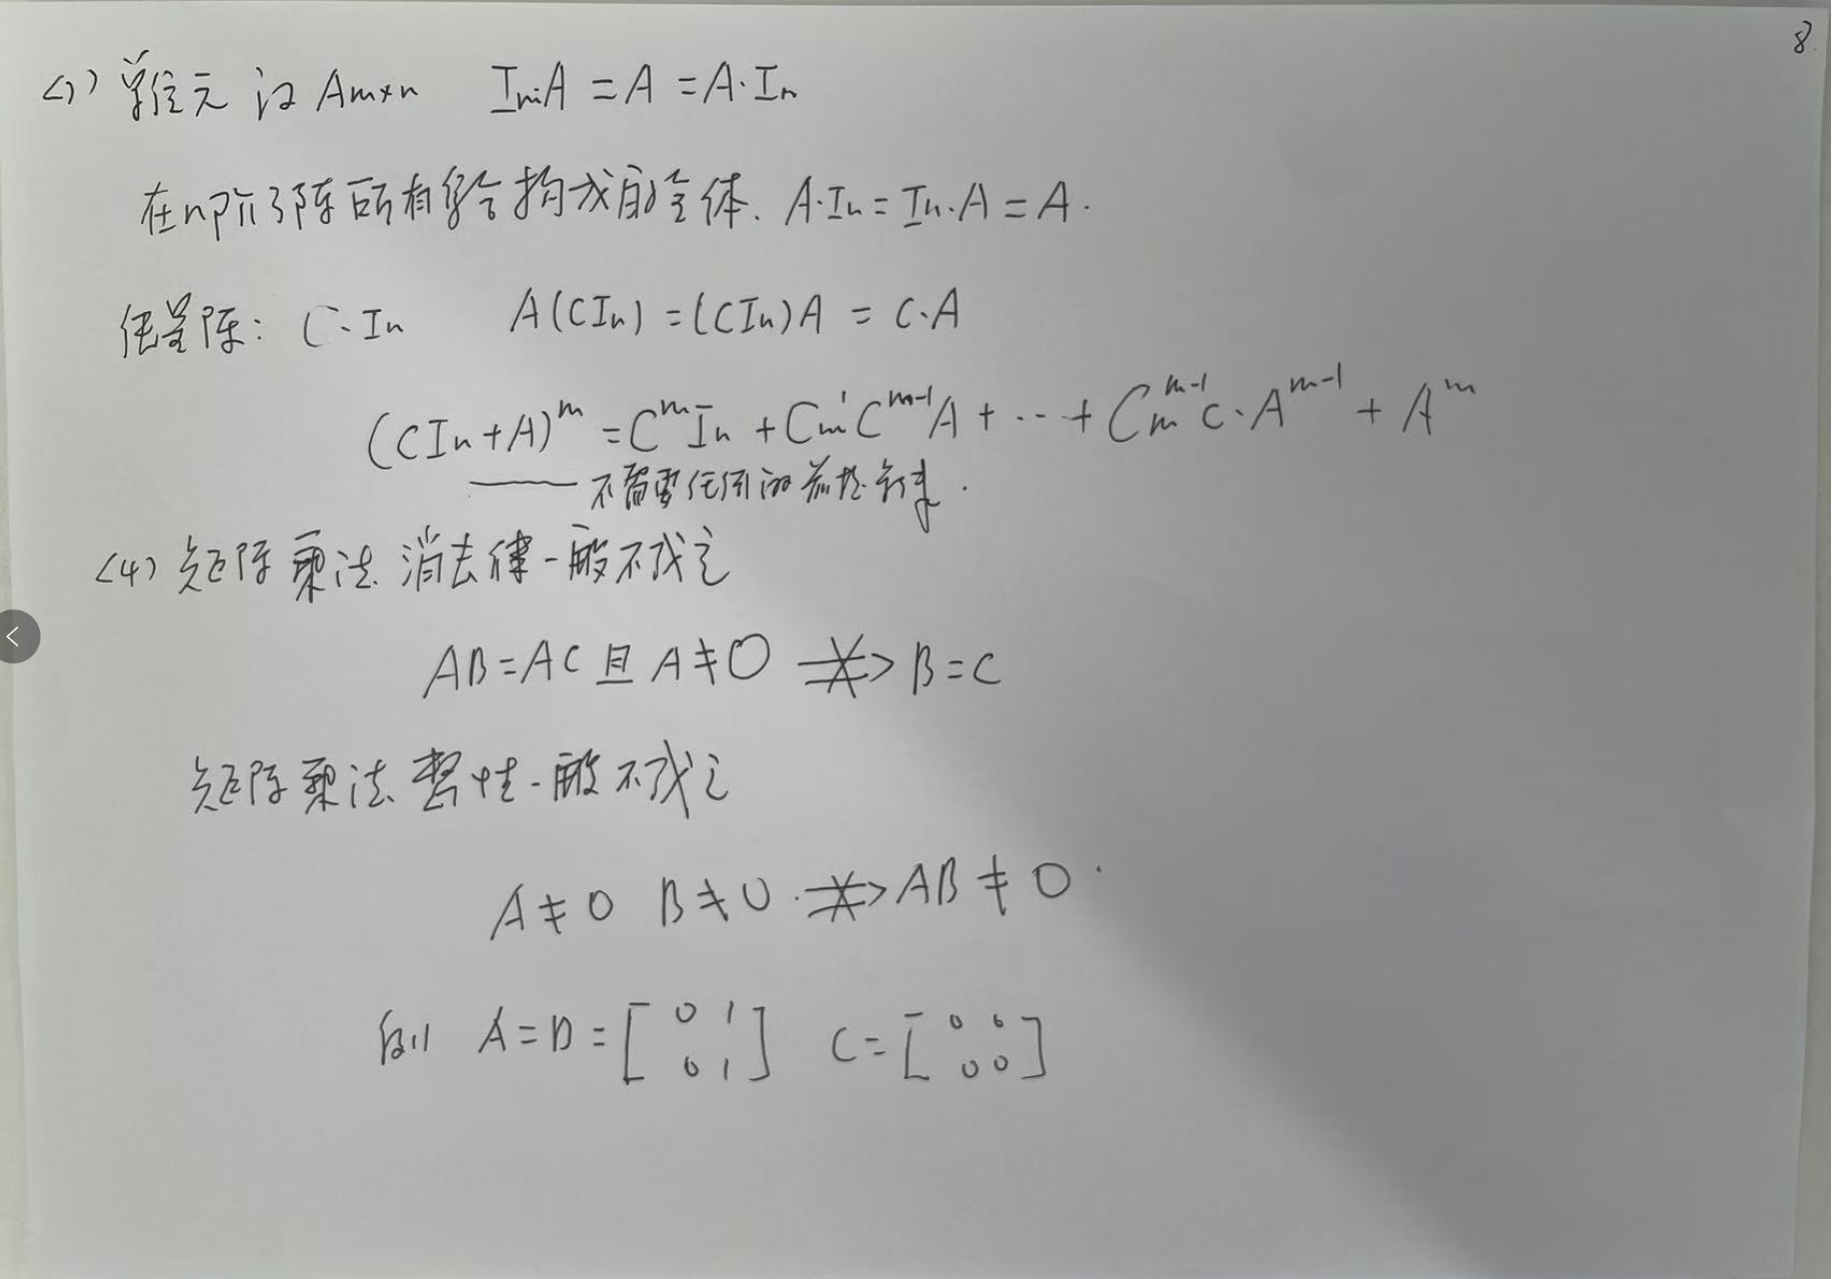 8.
<3> 单位元 设 Am×n  Im·A = A = A·In
在n阶方阵所有矩阵构成的全体. A·In = In·A = A.
纯量阵: C·In  A(CIn) = (CIn)A = C·A
(CIn+A)^m = C^m In + C_m^1 C^{m-1} A + ··· + C_m^{m-1} C·A^{m-1} + A^m
—— 不需要任何的前提条件.
<4> 矩阵乘法 消去律一般不成立
AB = AC 且 A ≠ O ⇏ B = C
矩阵乘法 整性一般不成立
A ≠ 0 B ≠ 0 ⇏ AB ≠ 0.
例 A = B = [0 1
0 1] C = [0 0
0 0]